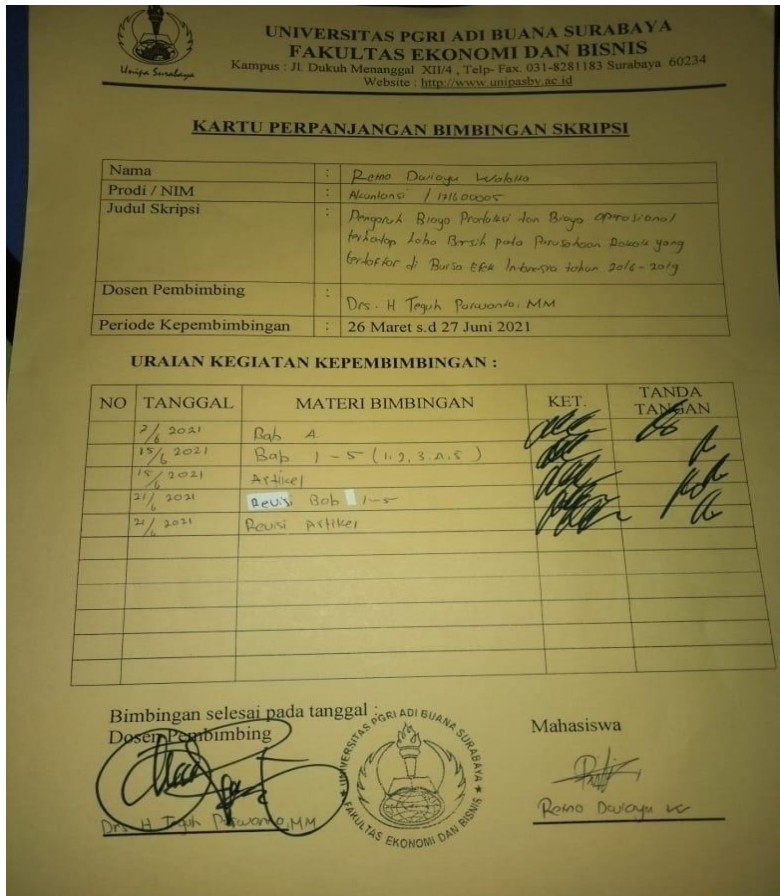 Unipa Surabaya
UNIVERSITAS PGRI ADI BUANA SURABAYA
FAKULTAS EKONOMI DAN BISNIS
Kampus : Jl. Dukuh Menanggal XII/4 , Telp- Fax. 031-8281183 Surabaya 60234
Website : http://www.unipasby.ac.id
KARTU PERPANJANGAN BIMBINGAN SKRIPSI
Nama :
Prodi / NIM : Akuntansi / 171600005
Judul Skripsi : Pengaruh Biaya Produksi dan Biaya operasional
terhadap Laba Bersih pada Perusahaan Rokok yang
terdaftar di Bursa Efek Indonesia tahun 2016-2019
Dosen Pembimbing : Drs. H Teguh Purwanto, MM
Periode Kepembimbingan : 26 Maret s.d 27 Juni 2021
URAIAN KEGIATAN KEPEMBIMBINGAN :
NO TANGGAL MATERI BIMBINGAN KET. TANDA TANGAN
2/6 2021 Bab 4.
15/6 2021 Bab 1 - 5 (1, 2, 3, 4, 5)
15/6 2021 Artikel
21/6 2021 Revisi Bab 1-5
21/6 2021 Revisi Artikel
Bimbingan selesai pada tanggal :
Dosen Pembimbing
Mahasiswa
UNIVERSITAS PGRI ADI BUANA SURABAYA
FAKULTAS EKONOMI DAN BISNIS
Drs H Teguh Purwanto, MM